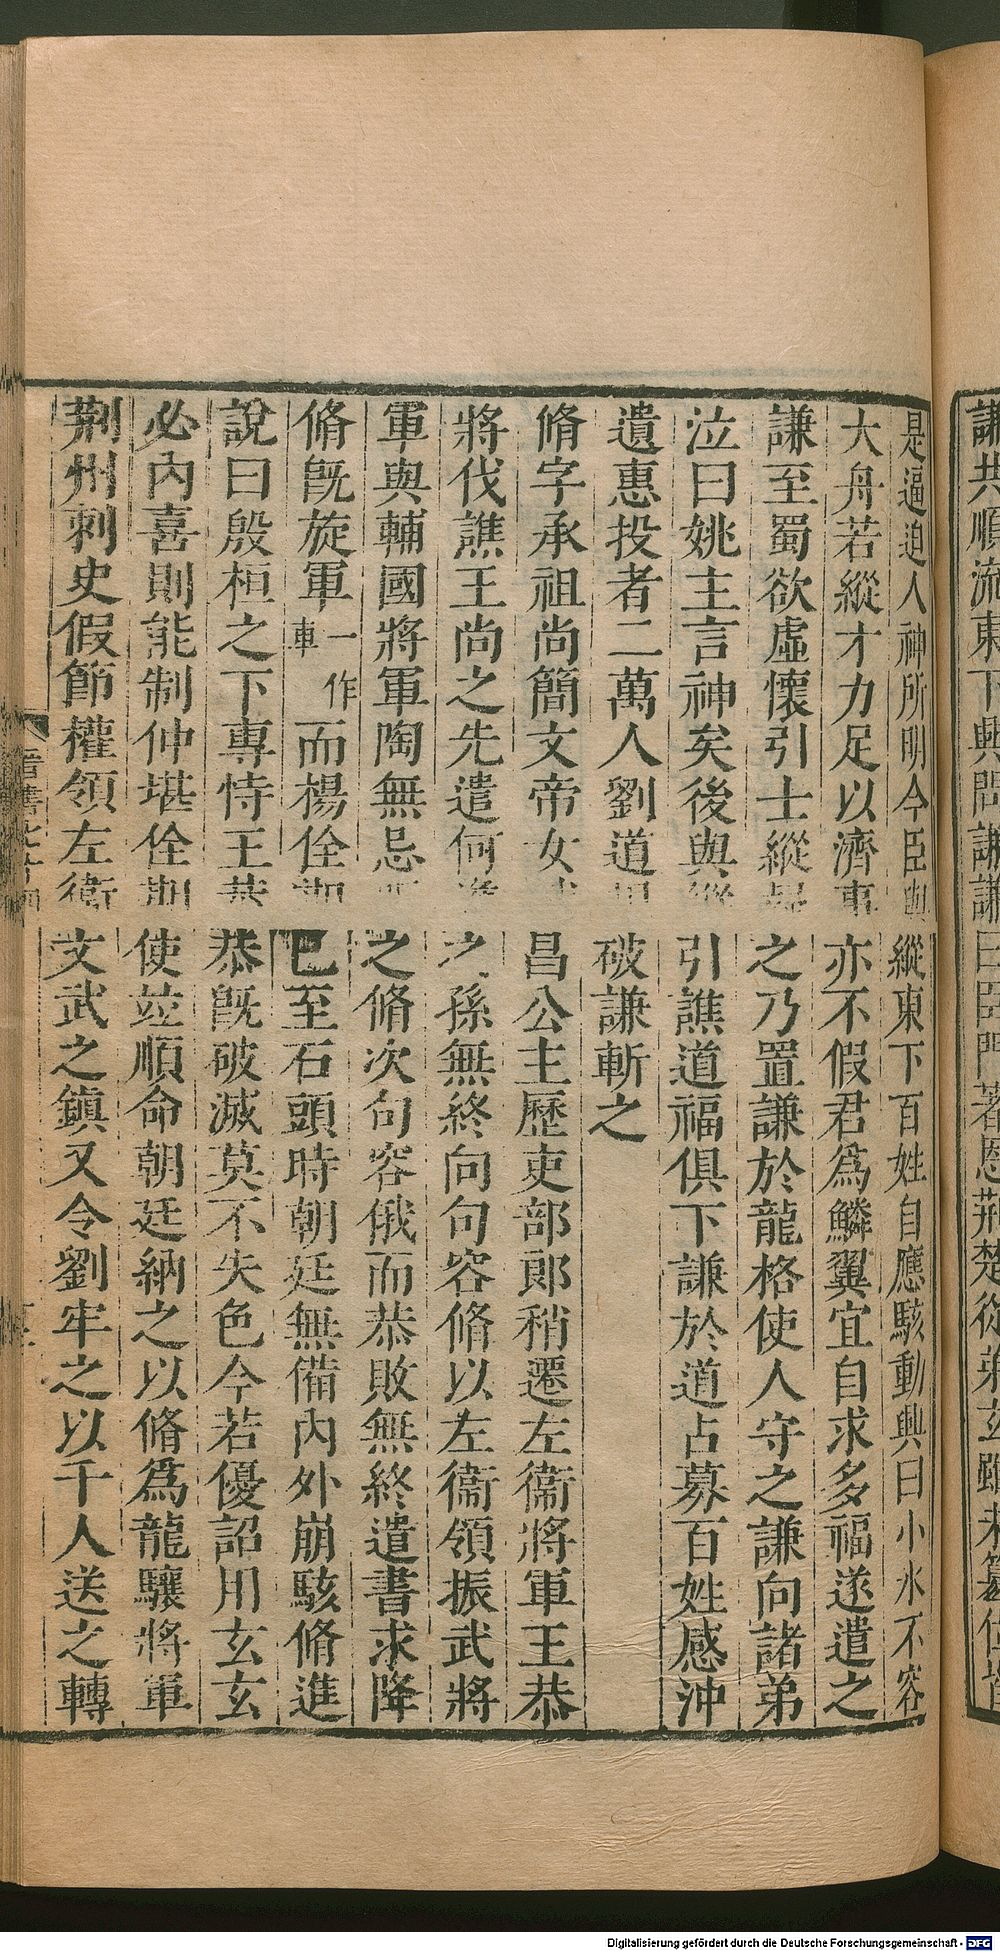 謙共順流東下興問謙謙曰臣門著恩荆楚從弟玄雖未篡位皆
是逼迫人神所明今臣與縱東下百姓自應駭動興曰小水不容
大舟若縱才力足以濟事亦不假君爲鱗翼宜自求多福遂遣之
謙至蜀欲虛懷引士縱之乃置謙於龍格使人守之謙向諸弟
泣曰姚主言神矣後與縱引譙道福俱下謙於道占募百姓感沖
遺惠投者二萬人劉道破謙斬之
脩字承祖尚簡文帝女昌公主歷吏部郎稍遷左衞將軍王恭
將伐譙王尚之先遣何之孫無終向句容脩以左衞領振武將
軍與輔國將軍陶無忌之脩次句容俄而恭敗無終遣書求降
脩旣旋軍一作車而楊佺期已至石頭時朝廷無備內外崩駭脩進
說曰殷桓之下專恃王恭恭旣破滅莫不失色今若優詔用玄玄
必內喜則能制仲堪佺期使竝順命朝廷納之以脩爲龍驤將軍
荆州刺史假節權領左衞文武之鎮又令劉牢之以千人送之轉
晉書
Digitalisierung gefördert durch die Deutsche Forschungsgemeinschaft - DFG